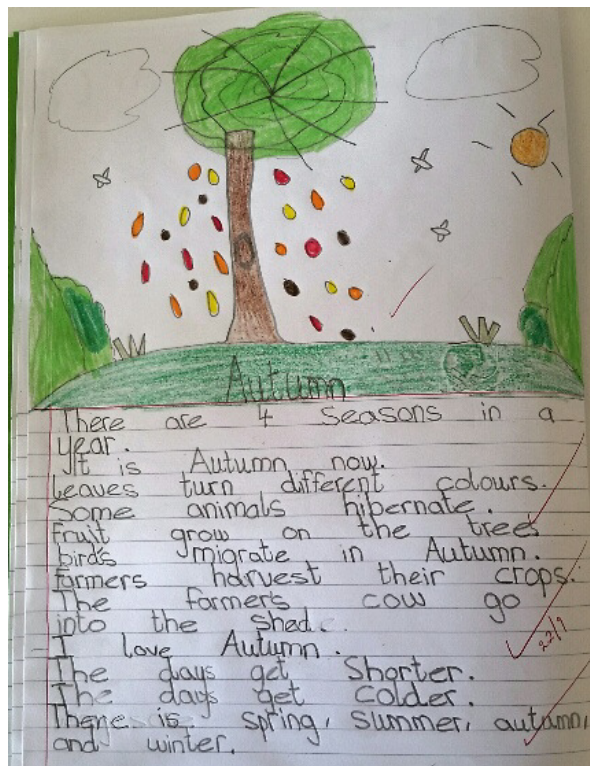 Autumn
There are 4 seasons in a
year.
It is Autumn now.
Leaves turn different colours.
Some animals hibernate.
Fruit grow on the trees
birds migrate in Autumn.
farmers harvest their crops.
The farmers cow go
into the shed.
I love Autumn.
The days get shorter.
The days get colder.
There is spring, summer, autumn,
and winter.
22/9